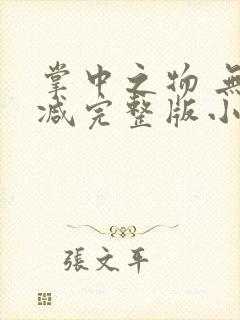 掌中之物 無
减完整版小
張文平